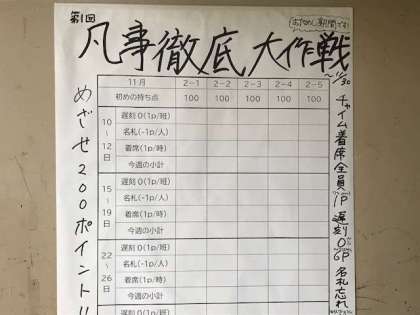 第1回
おためし期間です!
凡事徹底大作戦
~11/30
めざせ200ポイント!!
11月 2-1 2-2 2-3 2-4 2-5
初めの持ち点 100 100 100 100 100
10~12日
遅刻0(1p/班)
名札(-1p/人)
着席(1p/時)
今週の小計
15~19日
遅刻0(1p/班)
名札(-1p/人)
着席(1p/時)
今週の小計
22~26日
遅刻0(1p/班)
名札(-1p/人)
着席(1p/時)
今週の小計
チャイム着席全員1P
遅刻0 6P
名札忘れ